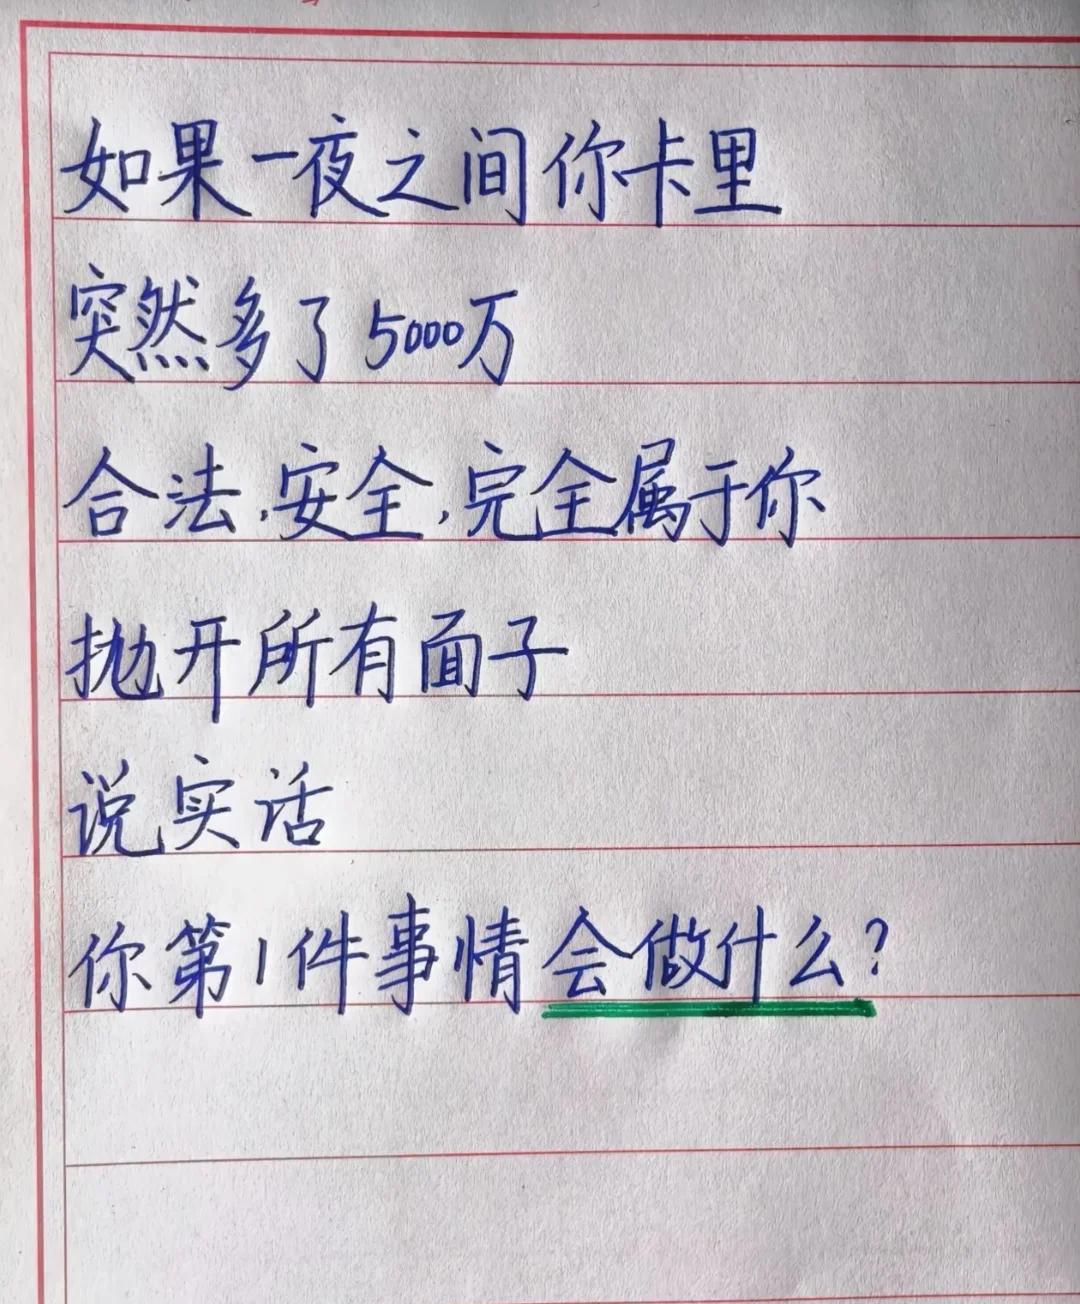 如果一夜之间你卡里
突然多了5000万
合法,安全,完全属于你
抛开所有面子
说实话
你第1件事情会做什么?